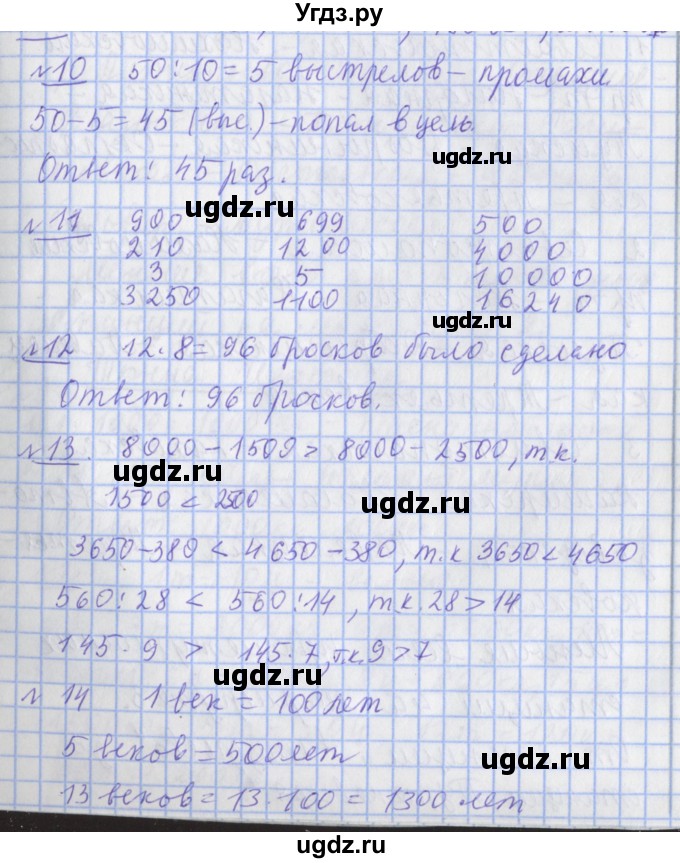 Угдз.ру
№10 50:10=5 выстрелов – промахи
50-5=45 (выс.) – попал в цель.
ugdz.ru
Ответ: 45 раз.
ugdz.ru
№11 900 699 500
210 1200 4000
3 5 10000
3250 1100 16240
ugdz.ru
№12 12·8=96 бросков было сделано
ugdz.ru
Ответ: 96 бросков.
№13. 8000-1500> 8000-2500, т.к.
ugdz.ru
1500 < 2500
ugdz.ru
3650-380 < 4650-380, т.к 3650<4650
560:28 < 560:14, т.к. 28>14
145·9 > 145·7, т.к. 9>7
ugdz.ru
№14 1 век = 100 лет
5 веков = 500 лет
ugdz.ru
13 веков = 13·100 = 1300 лет
ugdz.ru